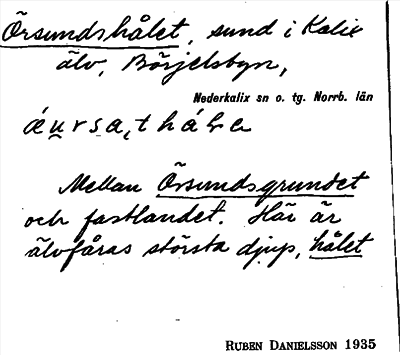 Örsundshålet, sund i Kalix
älv, Börjelsbyn,
Nederkalix sn o. tg. Norrb. län
Mellan Örsundsgrundet
och fastlandet. Här är
älvfåras största djup, hålet
RUBEN DANIELSSON 1935